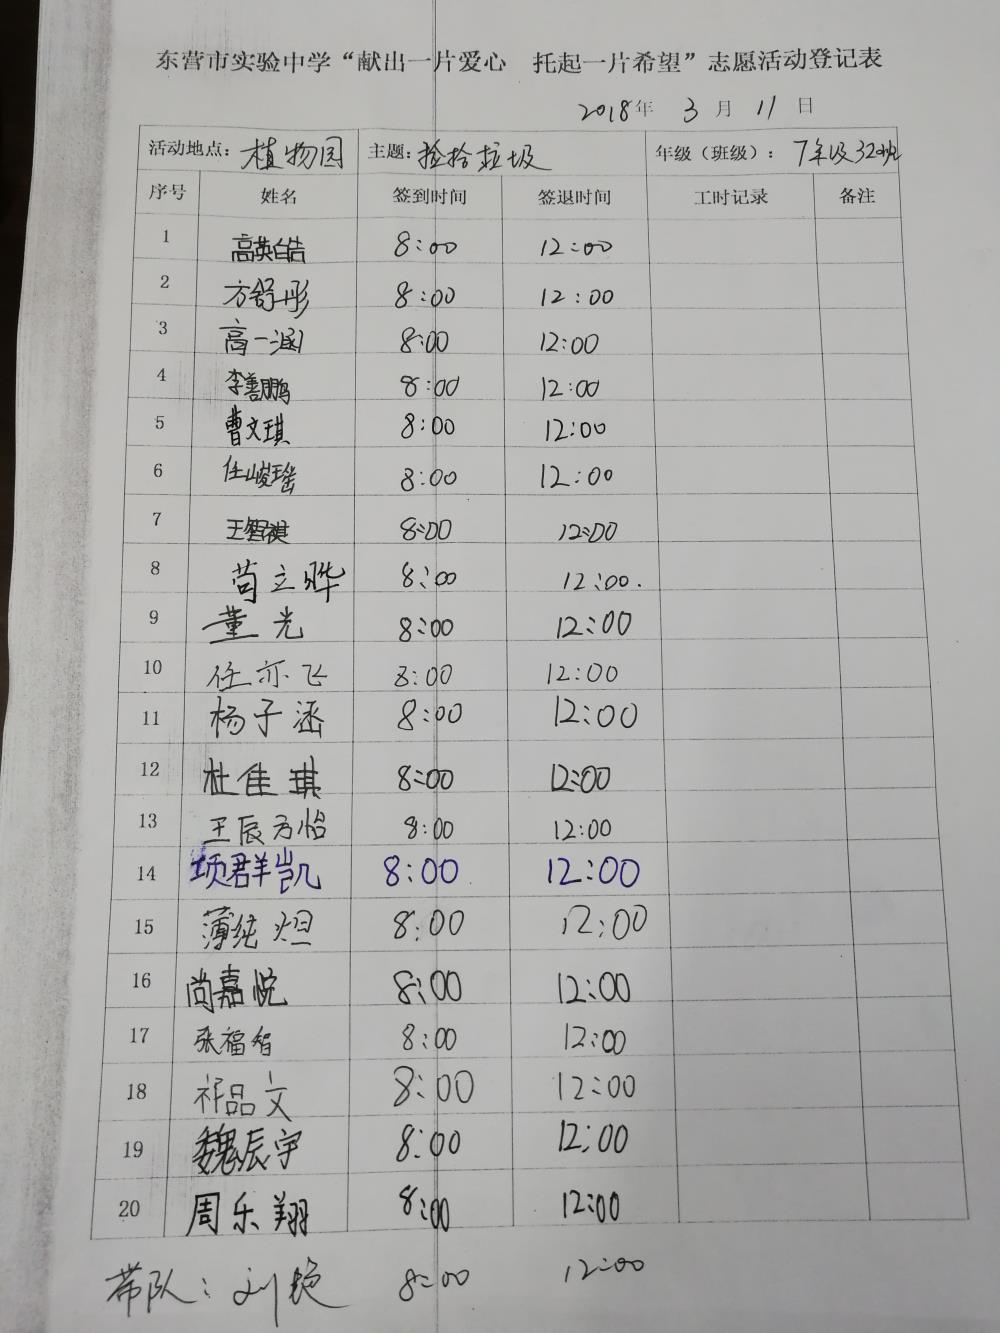 东营市实验中学“献出一片爱心 托起一片希望”志愿活动登记表
2018年 3 月 11 日
活动地点：植物园 主题：捡拾垃圾 年级（班级）：7年级32班
序号 姓名 签到时间 签退时间 工时记录 备注
1 高英皓 8:00 12:00
2 方舒彤 8:00 12:00
3 高一涵 8:00 12:00
4 李善鹏 8:00 12:00
5 曹文琪 8:00 12:00
6 任峻瑶 8:00 12:00
7 王智祺 8:00 12:00
8 苟立晔 8:00 12:00.
9 董光 8:00 12:00
10 任亦飞 8:00 12:00
11 杨子涵 8:00 12:00
12 杜佳琪 8:00 12:00
13 王辰方怡 8:00 12:00
14 项群凯 8:00 12:00
15 薄纯烜 8:00 12:00
16 尚嘉悦 8:00 12:00
17 张福智 8:00 12:00
18 祁品文 8:00 12:00
19 魏辰宇 8:00 12:00
20 周乐翔 8:00 12:00
带队：刘艳 8:00 12:00